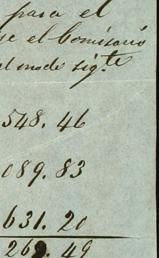 para el
se el Comisario
al mode sig.te
548. 46
089. 83
631. 20
269. 49